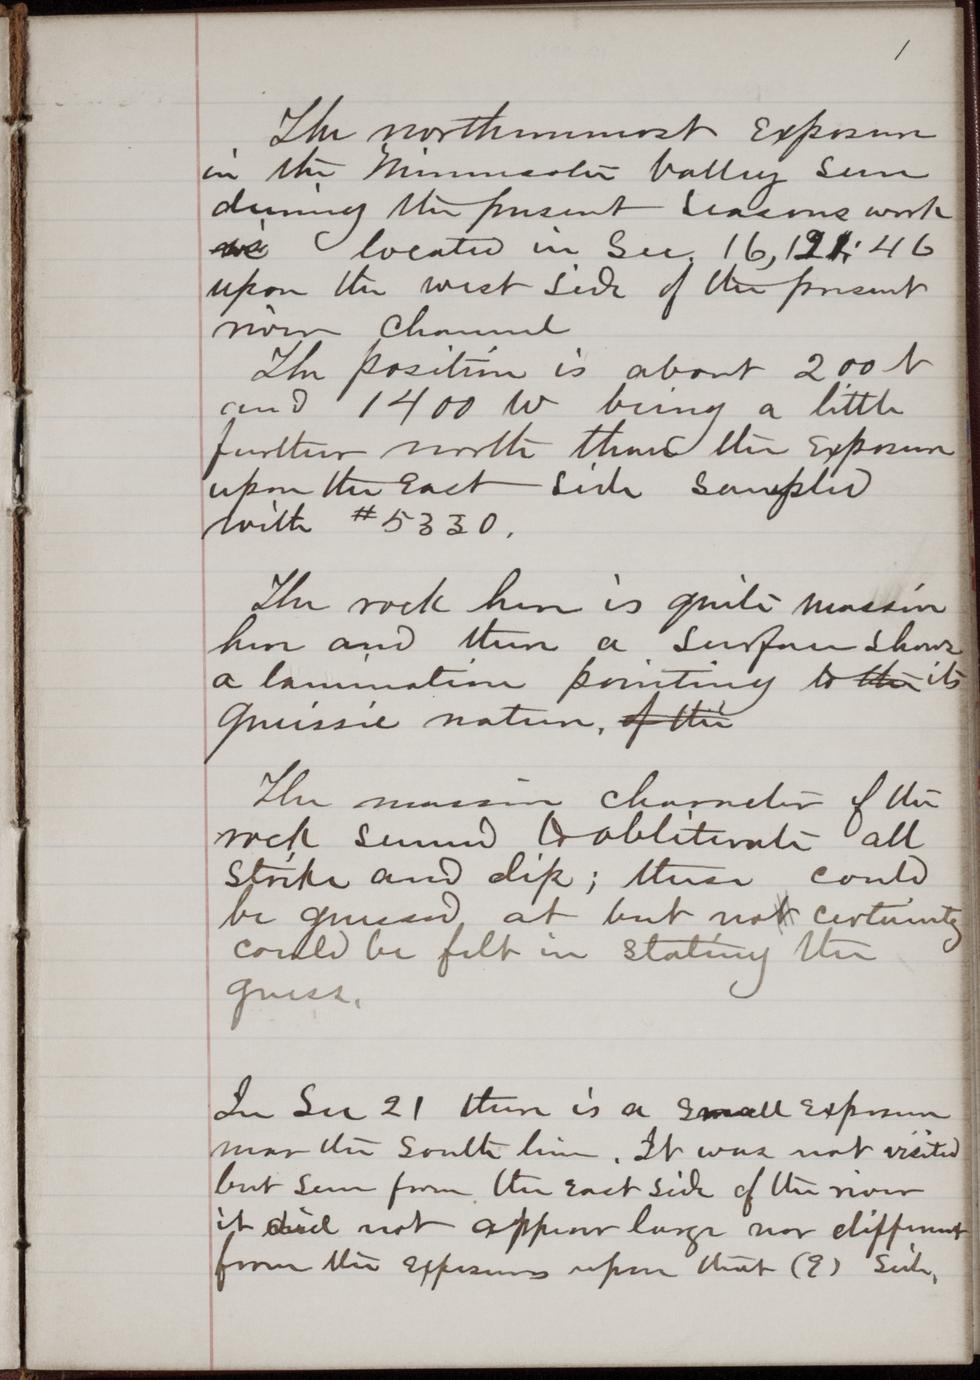 1
The northernmost exposure
in the Minnesota Valley seen
during the present seasons work
is located in Sec. 16, 121, 46
upon the west side of the present
river channel
The position is about 200 N
and 1400 W being a little
further north than the exposure
upon the East side sampled
with #5330.
The rock here is quite massive
here and there a surface shows
a lamination pointing to the its
gneissic nature. of the
The massive character of the
rock seemed to obliterate all
strike and dip; these could
be guessed at but not certainty
could be felt in stating the
guess.
In Sec 21 there is a small exposure
near the south line. It was not visited
but seen from the East side of the river
it did not appear large nor different
from the exposures upon that (E) side.